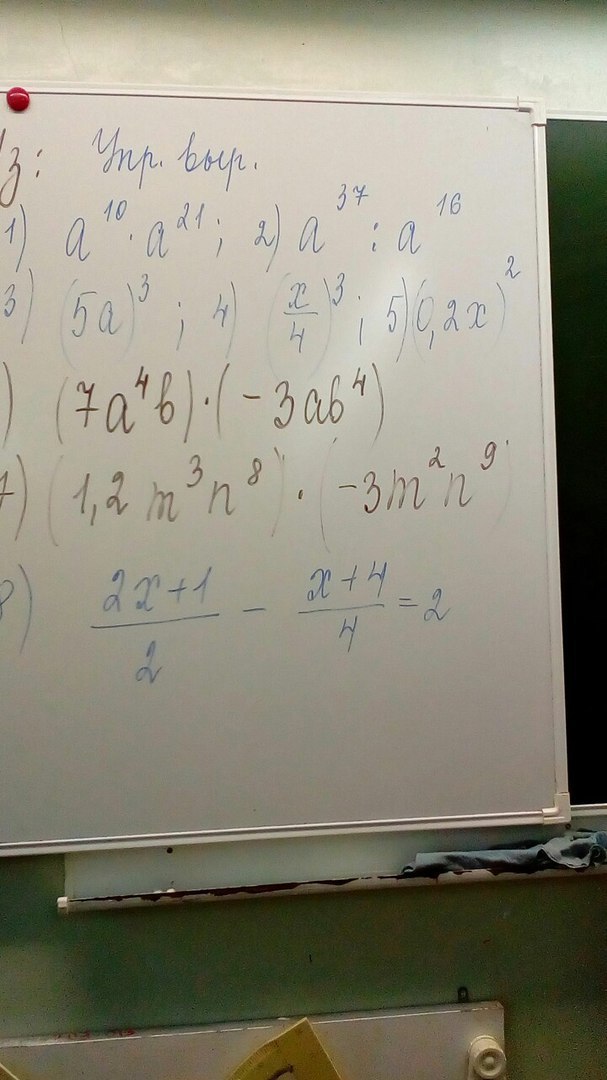 з: Упр. выр.
1) a¹⁰ · a²¹; 2) a³⁷ : a¹⁶
3) (5a)³ ; 4) (x/4)³ ; 5) (0,2x)²
) (7a⁴b)·(-3ab⁴)
7) (1,2 m³n⁸) · (-3m²n⁹)
8) (2x+1)/2 - (x+4)/4 = 2